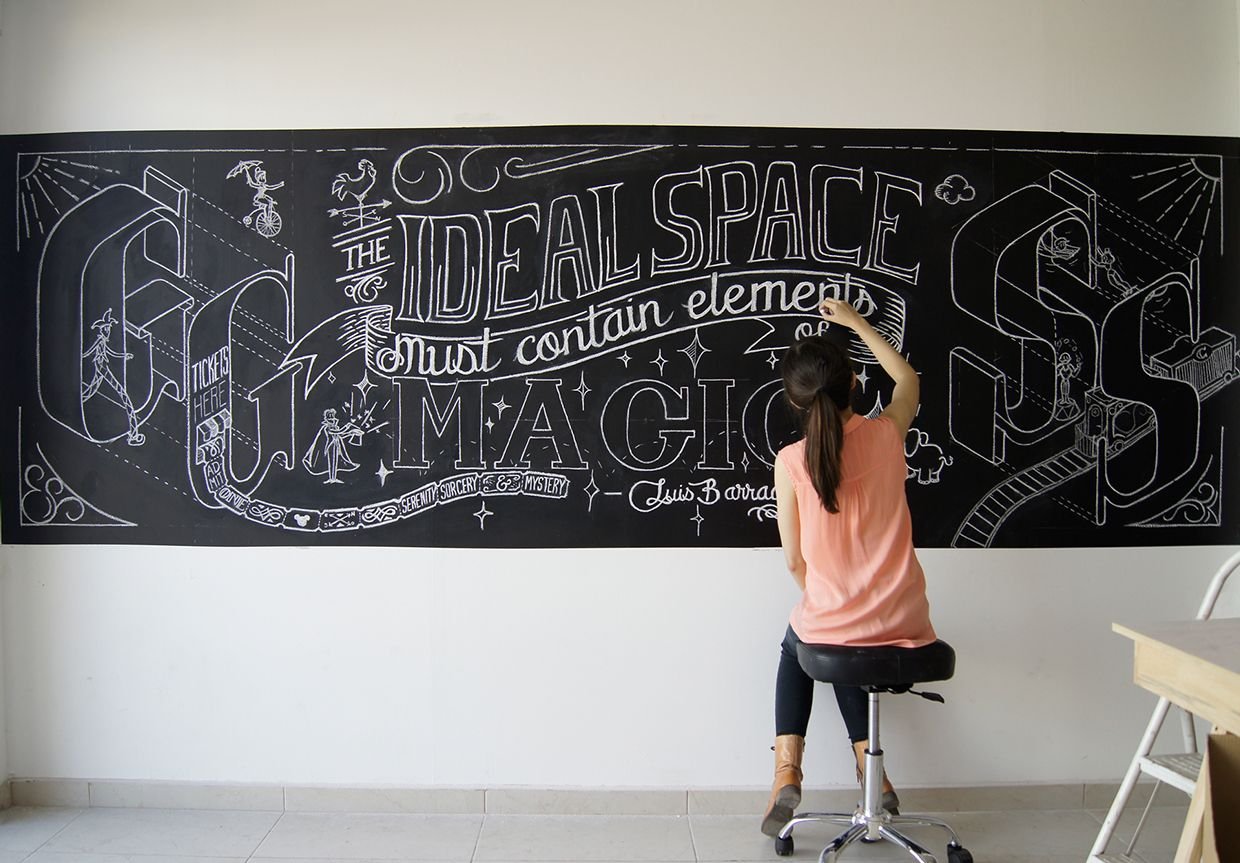 G
S
THE IDEAL SPACE
must contain elements
of
MAGIC
— Luis
TICKETS
HERE
ADMIT
ONE
SERENITY SORCERY & MYSTERY
C